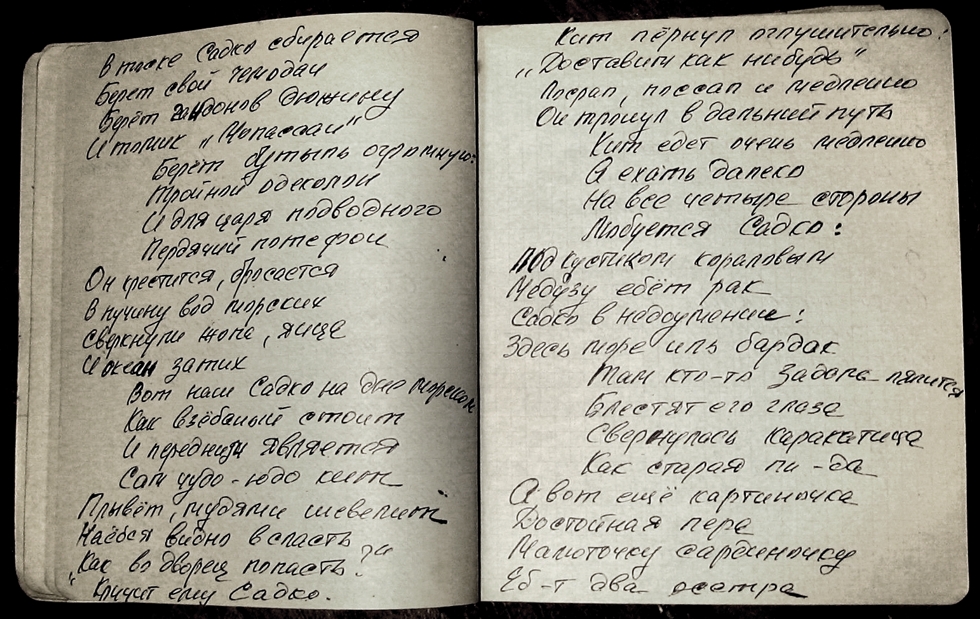 В тоске Садко сбирается
Берет свой чемодан
Берёт гандонов дюжину
И томик „Мопассан"
Берёт бутыль огромную:
Тройной одеколон
И для царя подводного
Пердячий потефон
Он крестится, бросается
В пучину вод морских
Сверкнули жопа, яйца
И океан затих
Вот наш Садко на дне морском
Как взъёбаный стоит
И перед ним является
Сам чудо-юдо кит
Плывёт, мудями шевелит
Наёбся видно всласть
„Как во дворец попасть?"
Кричит ему Садко.
Кит пёрнул оглушительно:
„Доставим как нибудь"
Посрал, поссал и медленно
Он тронул в дальний путь
Кит едет очень медленно
А ехать далеко
На все четыре стороны
Любуется Садко:
Под кустиком кораловым
Медузу ебёт рак
Садко в недоумении:
Здесь море иль бардак
Там кто-то задом пялится
Блестят его глаза
Свернулась каракатица
Как старая пи-да
А вот ещё картиночка
Достойная пера
Малюточку сардиночку
Еб-т два осетра